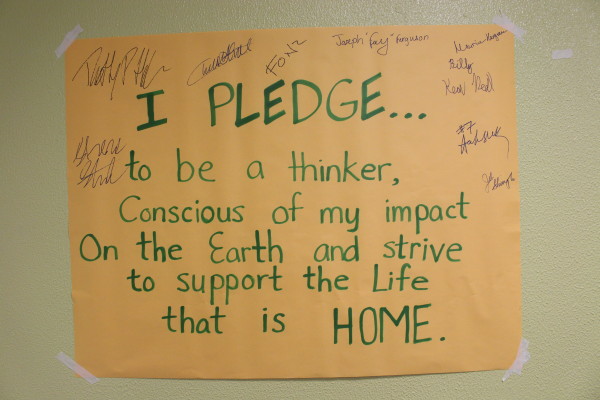 FON2
Joseph "Fay" Ferguson
Billy
I PLEDGE...
to be a thinker,
Conscious of my impact
On the Earth and strive
to support the Life
that is HOME.